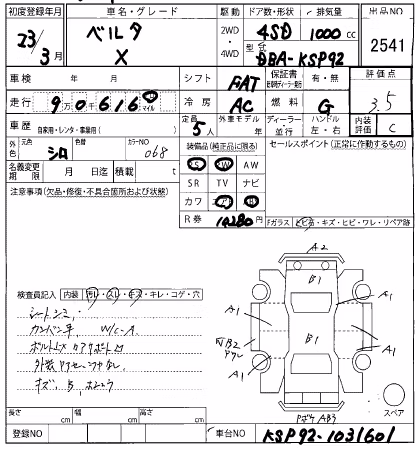 初度登録年月 車名・グレード 駆動 ドア数・形状 排気量 出品NO
23年3月 ベルタ X 2WD・4WD 4SD 1000cc 2541
型式 DBA-KSP92
車検 年 月 シフト FAT 保証書 有・無 評価点 3.5
走行 90616 マイル 冷房 AC 燃料 G
車歴 自家用・レンタ・事業用( ) 定員 5人 外車モデル 年 ディーラー・並行 ハンドル 左・右 内装評価 C
外色 元色 シロ 色替 カラーNO 068 装備品(純正品に限る) セールスポイント(正常に作動するもの)
名義変更期限 月 日迄 積載 t PS PW AW
注意事項(欠品・修復・不具合箇所および状態) SR TV ナビ
カワ エアB
R券 10280円 Fガラス ヒビ・キズ・ヒビ・ワレ・リペア跡
A2
B1
A1 A1
検査員記入 内装 汚レ・スレ・キズ・キレ・コゲ・穴
シートシミ
B1
W/C-A
A1 A1
キズ、B
スペア
長さ cm 幅 cm 高さ cm
登録NO 車台NO KSP92-1031601